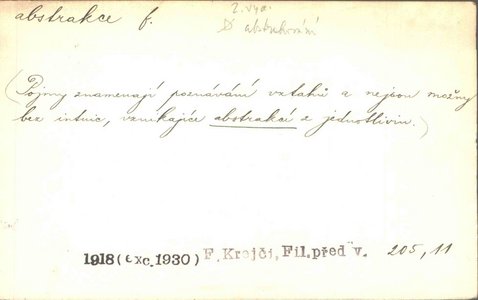 abstrakce f.
2. vyd.
(Pojmy znamenají poznávání vztahů a nejsou možny
bez intuic, vznikajíce abstrakcí z jednotlivin.)
1918 (exc. 1930) F. Krejčí, Fil. před v. 205, 11